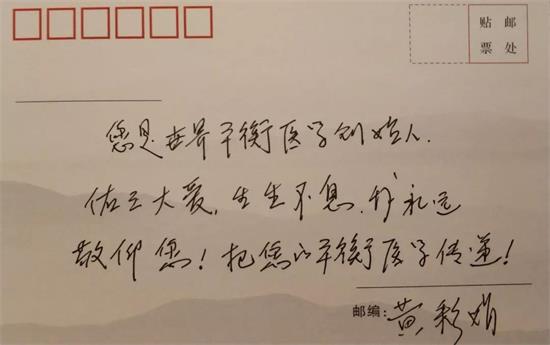 贴 邮
票 处
您是世界平衡医学创始人.
佑立大爱,生生不息.我永远
敬仰您!把您的平衡医学传递!
邮编:黄彩娟